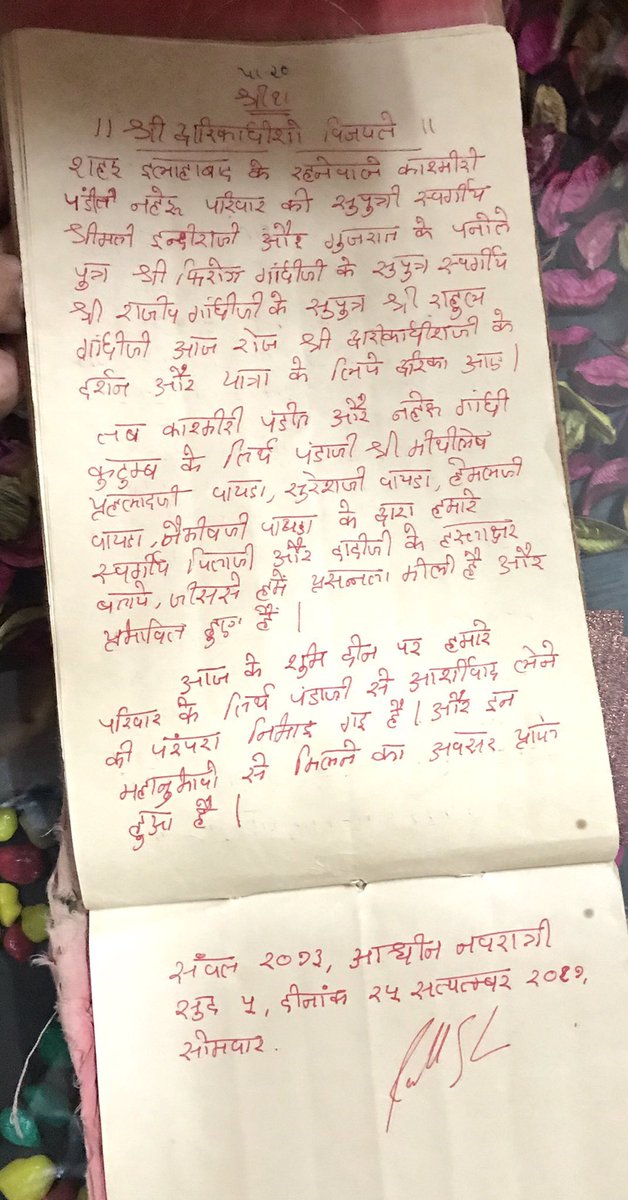 पा २०
श्री १।
।। श्री द्वारिकाधीशो विजयते ।।
शहर इलाहाबाद के रहनेवाले काश्मीरी
पंडीत नहेरू परिवार की सुपुत्री स्वर्गीय
श्रीमती इन्दीराजी और गुजरात के पनोते
पुत्र श्री फिरोज गांधीजी के सुपुत्र स्वर्गीय
श्री राजीव गांधीजी के सुपुत्र श्री राहुल
गांधीजी आज रोज श्री द्वारिकाधीशजी के
दर्शन और यात्रा के लिये द्वरिका आए।
तब काश्मीरी पंडीत और नहेरू गांधी
कुटुम्ब के तिर्थ पंडाजी श्री मीथीलेष
प्रहलादजी वायडा, सुरेशजी वायडा, हेमलजी
वायडा, नैमीषजी वायडा के द्वारा हमारे
स्वर्गीय पिताजी और दादीजी के हस्ताक्षर
बताये, जीससे हमें प्रसन्नता मीली है और
प्रभावित हुए हैं।
आज के शुभ दीन पर हमारे
परिवार के तिर्थ पंडाजी से आर्शीवाद लेने
की परंपरा निभाइ गइ है। और इन
महानुभावो से मिलने का अवसर प्राप्त
हुआ है।
संवत २०७३, आश्वीन नवरात्री
सुद ५, दीनांक २५ सप्तम्बर २०१७,
सोमवार.